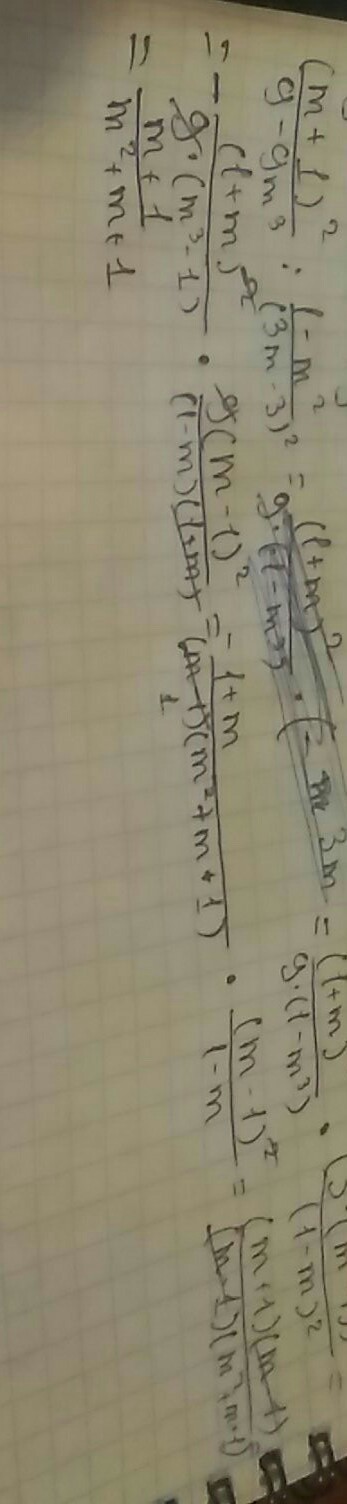 (m + 1)² / (9 - 9m³) : (1 - m²) / (3m - 3)² = (1+m)² / 9·(1-m³) · = (1+m) / 9·(1-m³) · / (1-m)² =
= - (1+m)² / 9·(m³-1) · 9(m-1)² / (1-m)(1+m) = - 1+m / (m-1)(m²+m+1) · (m-1)² / 1-m = (m+1)(m-1) / (m-1)(m²+m+1)
= m+1 / m²+m+1